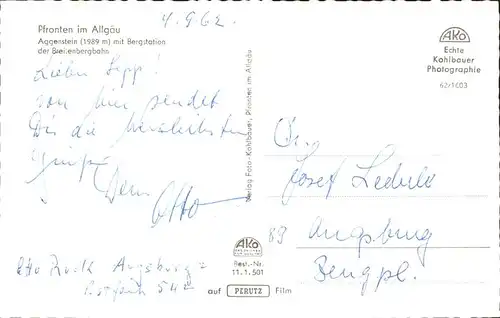 4.9.62.
Pfronten im Allgäu
Aggenstein (1989 m) mit Bergstation
der Breitenbergbahn
Lieber Sepp!
von hier sendet
Dir die herzlichsten
Grüße
Dein
Otto
Verlag Foto-Kohlbauer, Pfronten im Allgäu
AKO
Echte
Kohlbauer
Photographie
62/1403
Josef
89 Augsburg
AKO
Best.-Nr.
11.1.501
auf PERUTZ Film
Otto Augsburg 2
Postfach 542